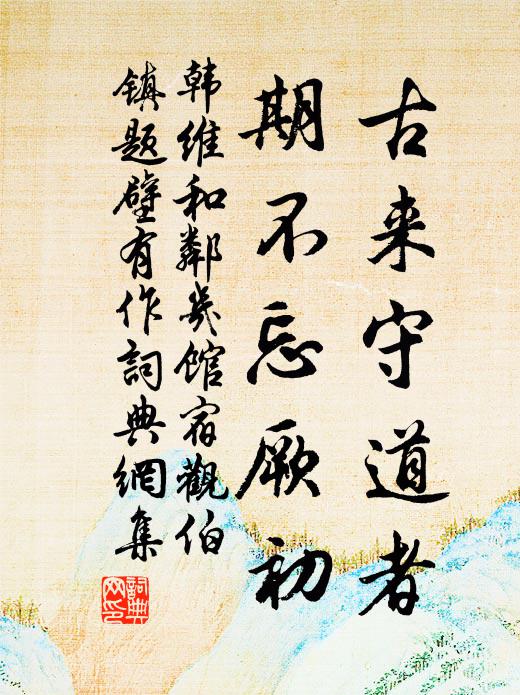 古来守道者
期不忘厥初
韩维和鄰幾馆宿觀伯
镇题壁有作詞典網集
詞典網印